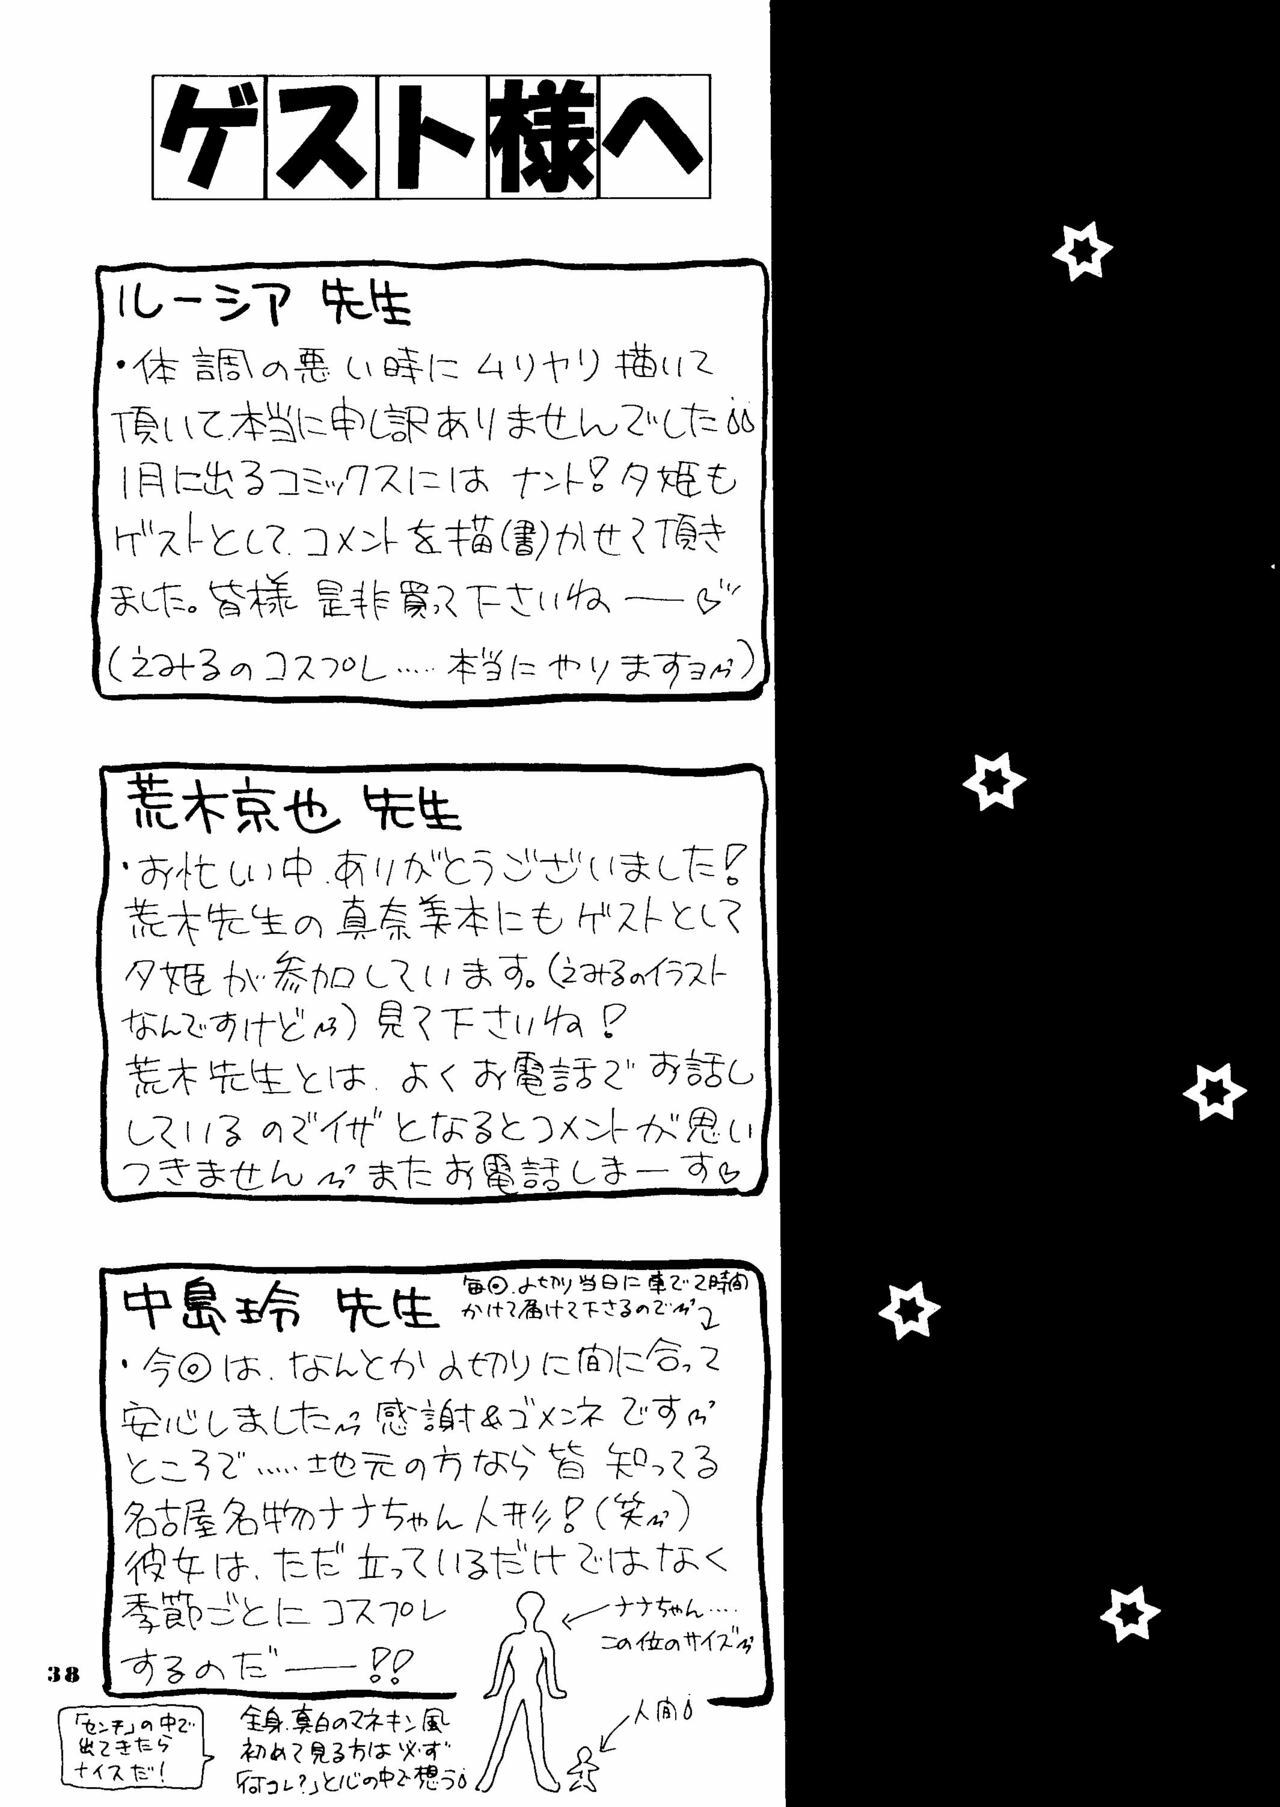 ゲスト様へ
ルーシア 先生
・体調の悪い時にムリヤリ描いて
頂いて、本当に申し訳ありませんでした
1月に出るコミックスにはナント!夕姫も
ゲストとして、コメントを描(書)かせて頂き
ました。皆様 是非買って下さいねー♡
(えみるのコスプレ……本当にやりますヨ)
荒木京也 先生
・お忙しい中、ありがとうございました!
荒木先生の真奈美本にもゲストとして
夕姫が参加しています。(えみるのイラスト
なんですけど)見て下さいね!
荒木先生とは、よくお電話でお話し
しているのでイザとなるとコメントが思い
つきません またお電話しまーす♡
中島玲 先生
毎回、〆切り当日に車で2時間
かけて届けて下さるので
・今回は、なんとか〆切りに間に合って
安心しました 感謝&ゴメンネです
ところで……地元の方なら皆知ってる
名古屋名物ナナちゃん人形!(笑)
彼女は、ただ立っているだけではなく
季節ごとにコスプレ
するのだー!!
ナナちゃん….
この位のサイズ
人間
38
「センチ」の中で
出てきたら
ナイスだ!
全身、真白のマネキン風
初めて見る方は必ず
「何コレ?」と心の中で想う